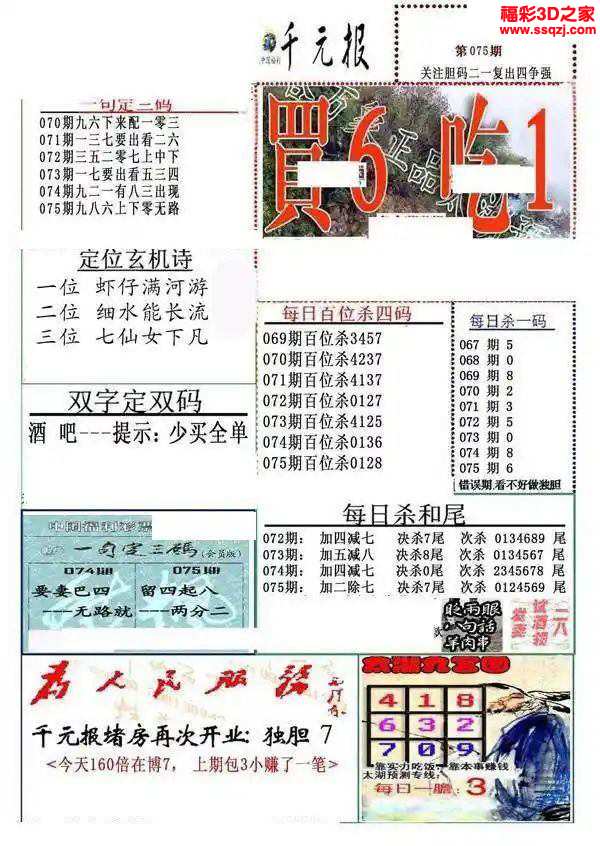 福彩3D之家
www.ssqzj.com
千元报
第075期
关注胆码二一复出四争强
一句定三码
070期九六下来配一零三
071期一三七要出看二六
072期三五二零七上中下
073期一七要出看五三四
074期九二一有八三出现
075期九八六上下零无路
買6吃1
定位玄机诗
一位 虾仔满河游
二位 细水能长流
三位 七仙女下凡
每日百位杀四码
069期百位杀3457
070期百位杀4237
071期百位杀4137
072期百位杀0127
073期百位杀4125
074期百位杀0136
075期百位杀0128
每日杀一码
067 期 5
068 期 0
069 期 8
070 期 2
071 期 3
072 期 5
073 期 0
074 期 8
075 期 6
错误期,看不好做独胆
双字定双码
酒 吧---提示: 少买全单
每日杀和尾
072期: 加四减七 决杀7尾 次杀 0134689 尾
073期: 加五减八 决杀8尾 次杀 0134567 尾
074期: 加四减七 决杀0尾 次杀 2345678 尾
075期: 加二除七 决杀7尾 次杀 0124569 尾
一句定三碼(会员版)
074期 075期
要妻巴四 留四起八
---无路就 ---两分二
眨雨眼
八句话
羊肉事
试酒顿
二八
为人民服务
千元报堵房再次开业: 独胆 7
<今天160倍在博7, 上期包3小赚了一笔>
太湖九宫图
4 1 8
6 3 2
7 0 9
靠实力吃饭, 靠本事赚钱
太湖预测专线:
每日一胆: 3